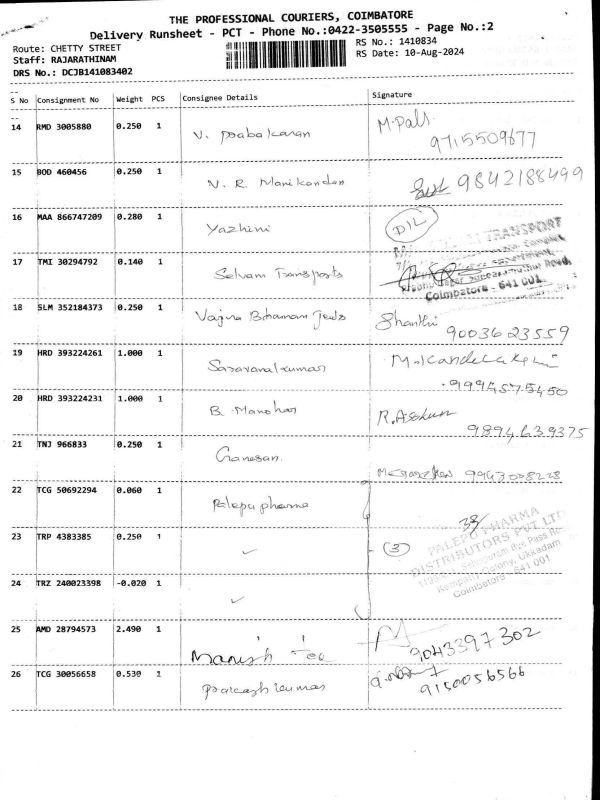 THE PROFESSIONAL COURIERS, COIMBATORE
Delivery Runsheet - PCT - Phone No.:0422-3505555 - Page No.:2
Route: CHETTY STREET
RS No.: 1410834
Staff: RAJARATHINAM
RS Date: 10-Aug-2024
DRS No.: DCJB141083402
S No Consignment No Weight PCS Consignee Details Signature
14 RMD 3005880 0.250 1 V. Prabakaran M.Pall
9715509677
15 BOD 460456 0.250 1 N. R. Manikandan 9842188499
16 MAA 866747209 0.280 1 Yazhini D/L
TRANSPORT
17 TMI 30294792 0.140 1 Selvam Transports
Coimbatore - 641 001.
18 SLM 352184373 0.250 1 Vajra Bhaman Jeds Shanthi
9003623559
19 HRD 393224261 1.000 1 Saravanakumar
9994575450
20 HRD 393224231 1.000 1 B. Manohar R.Asokun
9894639375
21 TNJ 966833 0.250 1 Ganesan
9943008228
22 TCG 50692294 0.060 1 Palepu pharma
23 TRP 4383385 0.250 1 ✓ (3)
PALEPU PHARMA
DISTRIBUTORS PVT LTD
Coimbatore - 641 001
24 TRZ 240023398 -0.020 1 ✓
25 AMD 28794573 2.490 1 Manish Tea 9043397302
26 TCG 30056658 0.530 1 Prakashkumar
9150056566